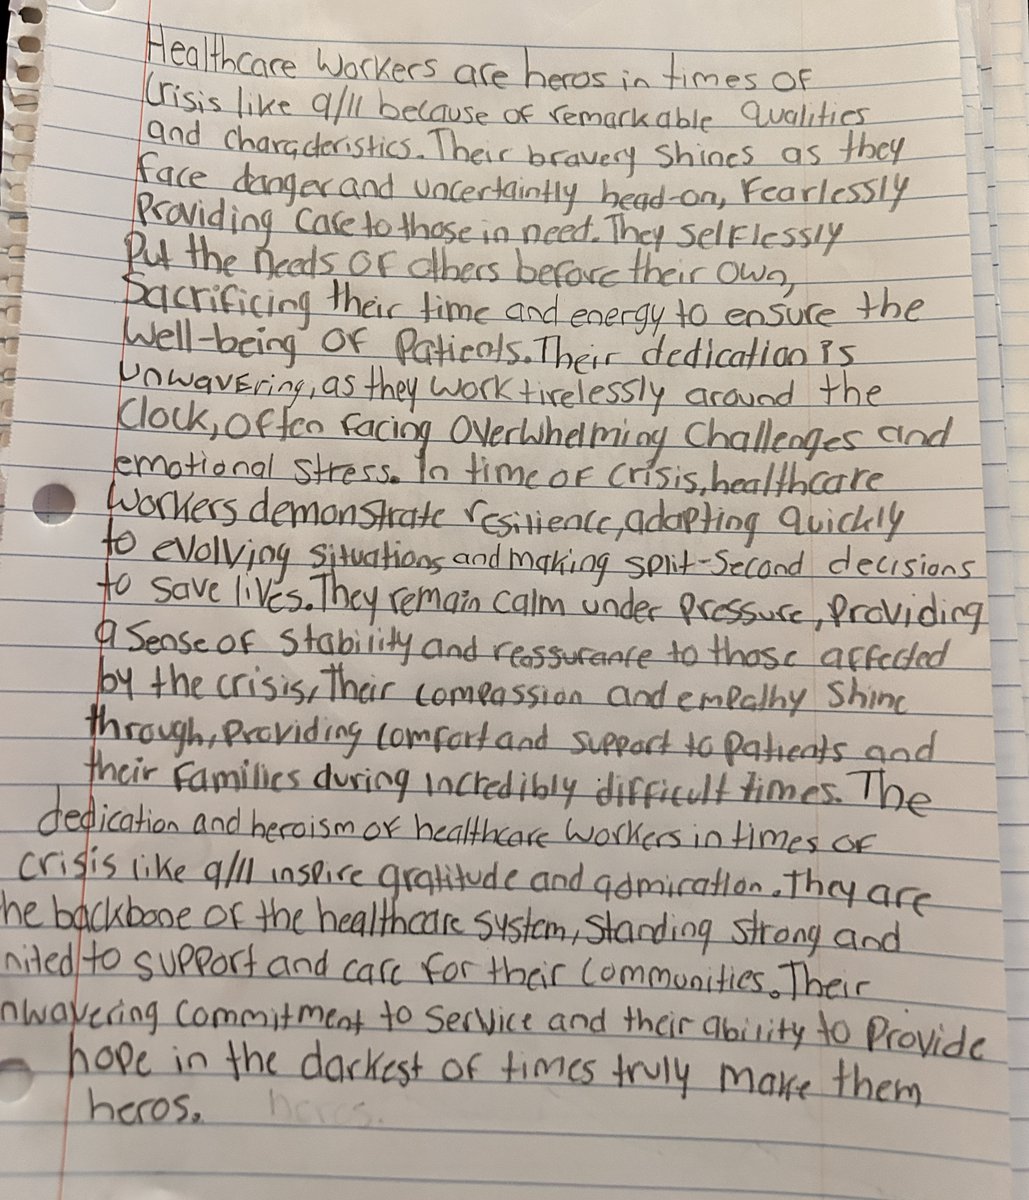 Healthcare Workers are heros in times of
Crisis like 9/11 because of remarkable Qualities
and characteristics. Their bravery shines as they
face danger and uncertaintly head-on, Fearlessly
Providing Care to those in need. They selflessly
Put the needs of others before their own,
Sacrificing their time and energy to ensure the
Well-being of Paticots. Their dedication is
unwavering, as they work tirelessly around the
Clock, often facing overwhelming Challenges and
emotional stress. In time of crisis, healthcare
Workers demonstrate resilience, adapting quickly
to evolving situations and making split-second decisions
to save lives. They remain calm under Pressure, Providing
a sense of stability and reassurance to those affected
by the crisis, Their compassion and empathy shine
through, Providing comfort and support to patients and
their families during incredibly difficult times. The
dedication and heroism of healthcare workers in times of
crisis like 9/11 inspire gratitude and admiration. They are
he backbone of the healthcare system, standing strong and
nited to support and care for their communities. Their
nwavering commitment to service and their ability to Provide
hope in the darkest of times truly make them
heros. heros.